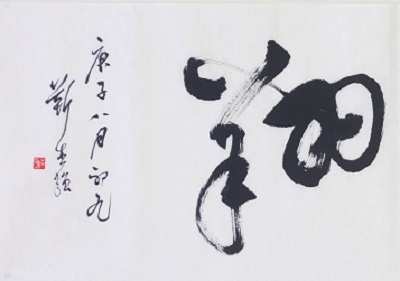 翔
庚子八月初九
靳